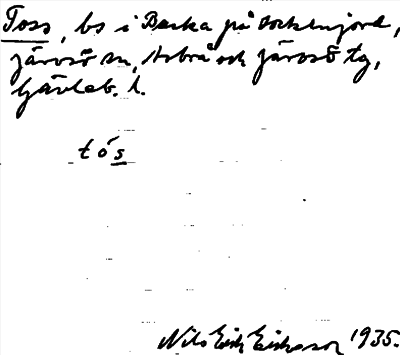 Toss, bs i Backa på Sockenjord,
Järvsö sn, Arbrå och Järvsö tg,
Gävleb. l.
tós
Nils Erik Eriksson 1935.